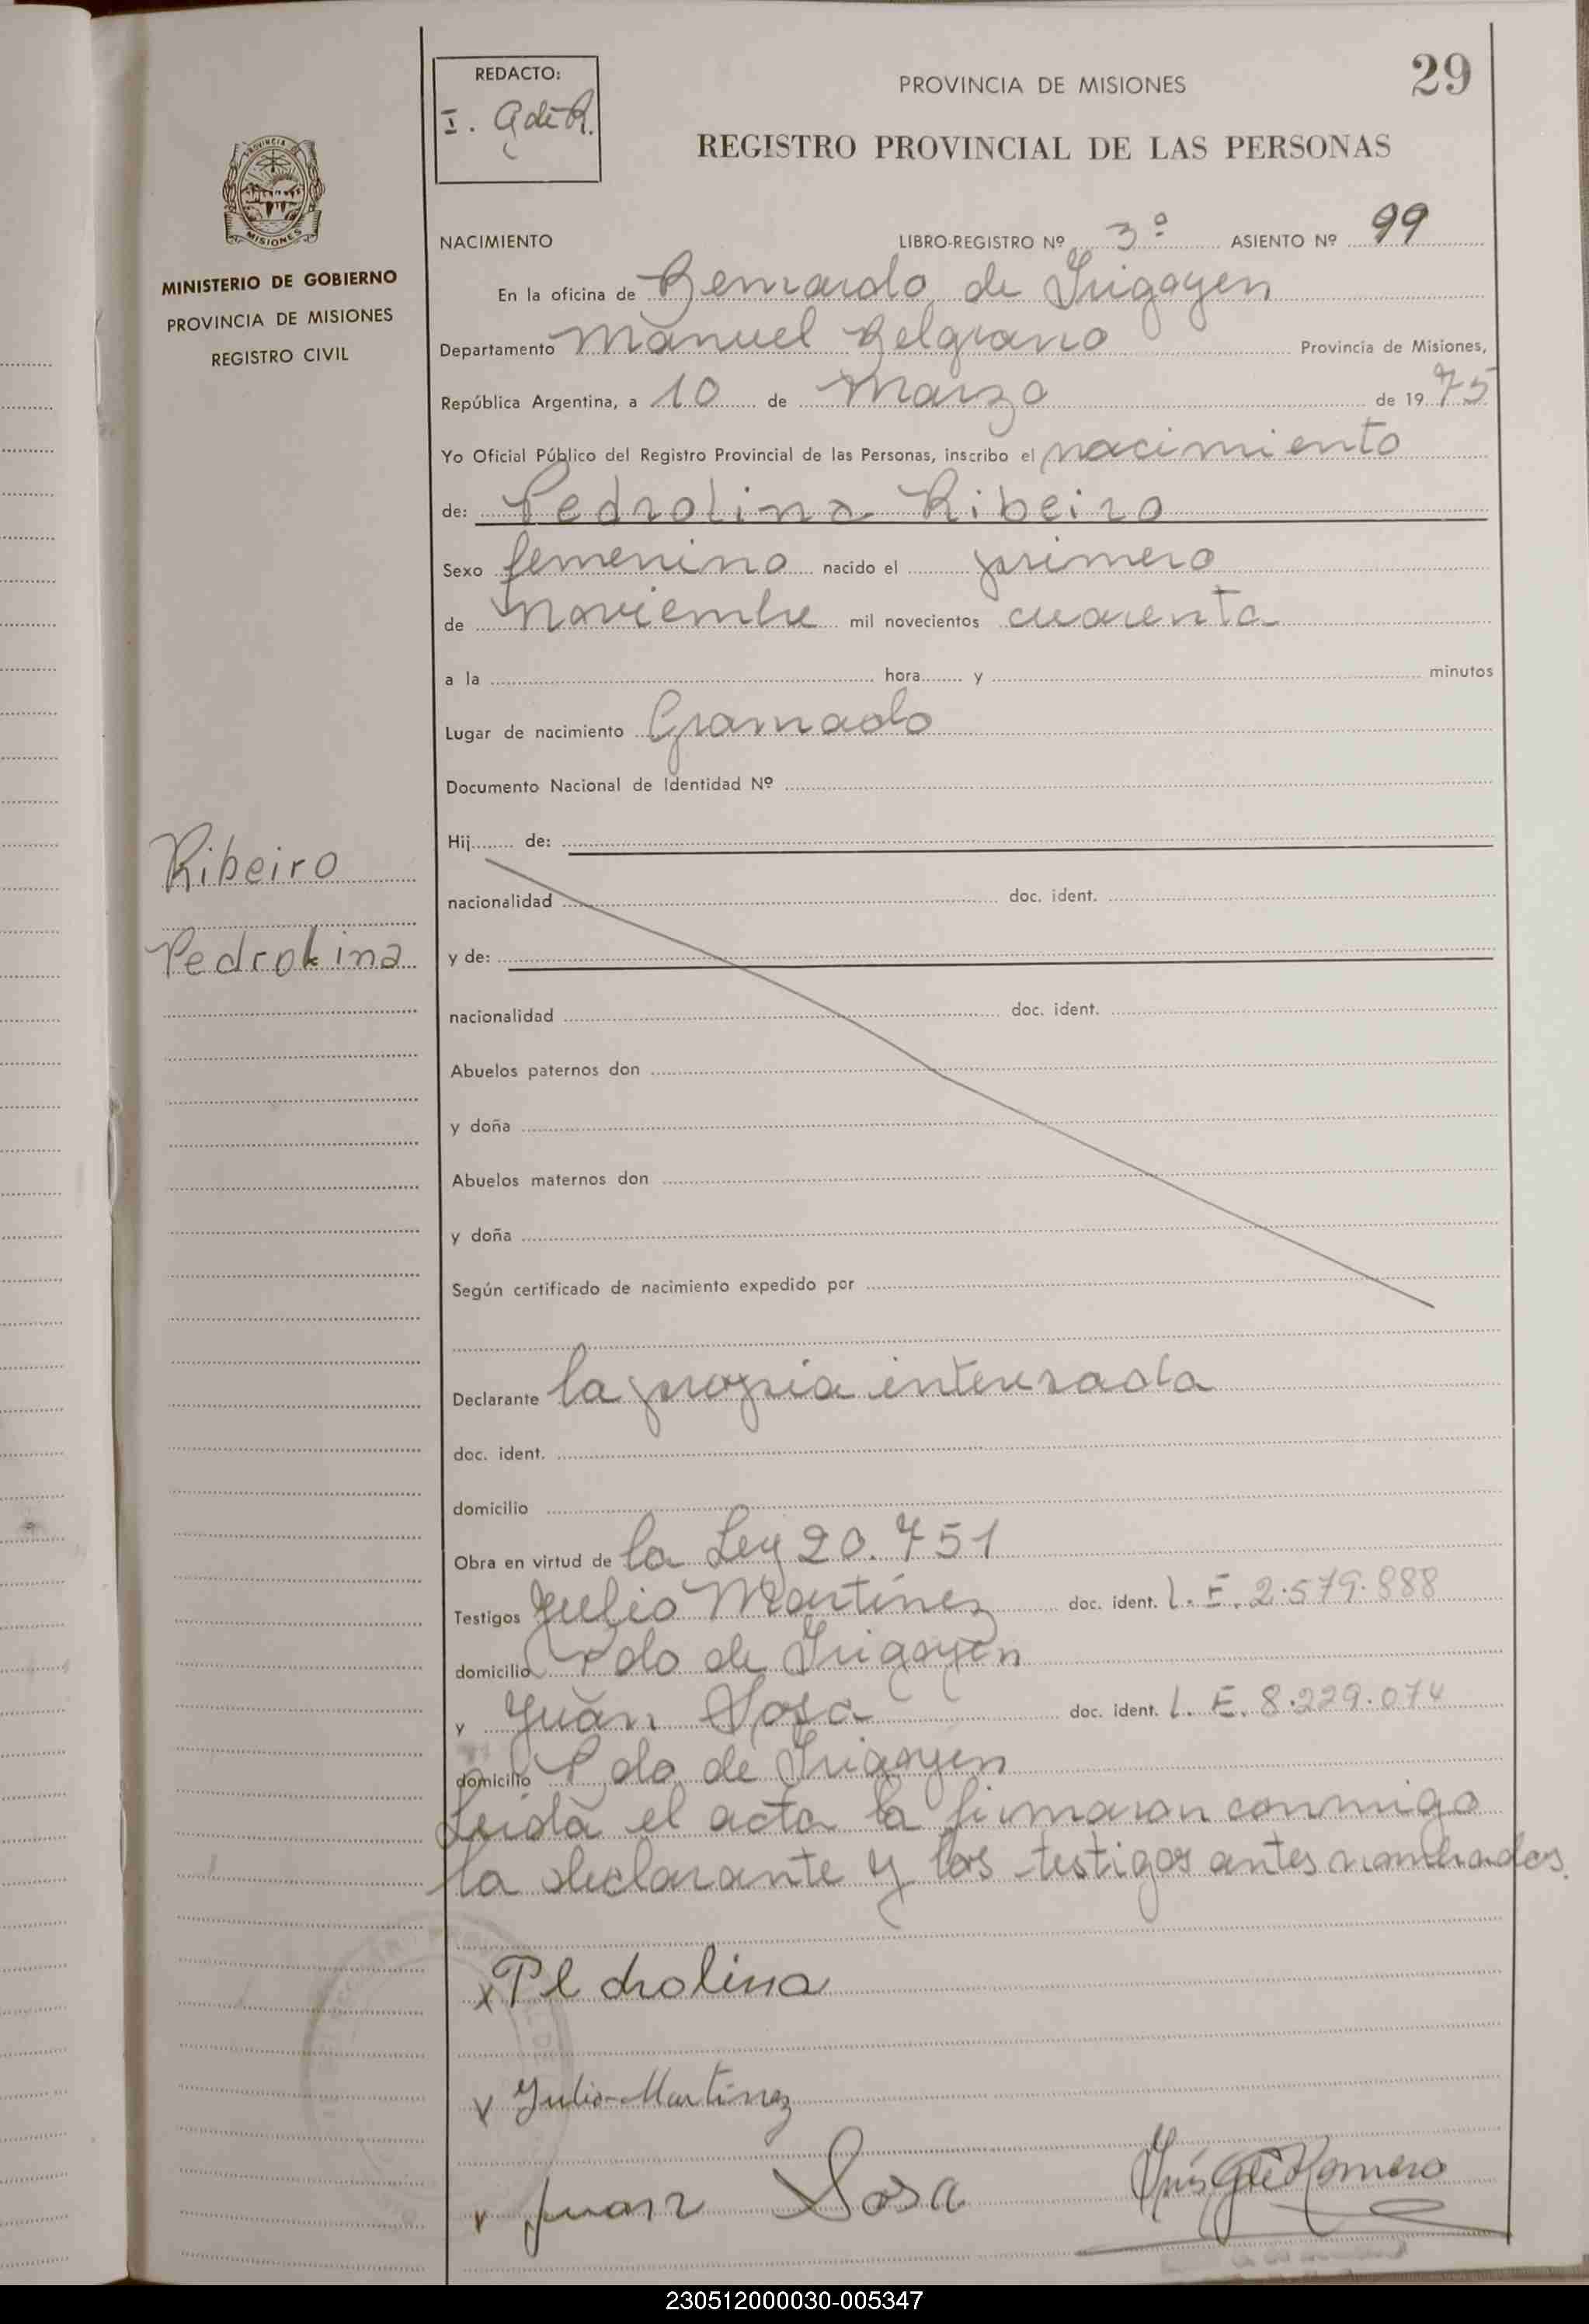 REDACTO:
I. G de R.
PROVINCIA DE MISIONES
29
REGISTRO PROVINCIAL DE LAS PERSONAS
PROVINCIA DE
MISIONES
MINISTERIO DE GOBIERNO
PROVINCIA DE MISIONES
REGISTRO CIVIL
NACIMIENTO LIBRO-REGISTRO Nº 3º ASIENTO Nº 99
En la oficina de Bernardo de Irigoyen
Departamento Manuel Belgrano Provincia de Misiones,
República Argentina, a 10 de Marzo de 1975
Yo Oficial Público del Registro Provincial de las Personas, inscribo el nacimiento
de: Pedrolina Ribeiro
Sexo femenino nacido el primero
de noviembre mil novecientos cuarenta
a la hora y minutos
Lugar de nacimiento Gramado
Documento Nacional de Identidad Nº
Ribeiro
Pedrolina
Hij de:
nacionalidad doc. ident.
y de:
nacionalidad doc. ident.
Abuelos paternos don
y doña
Abuelos maternos don
y doña
Según certificado de nacimiento expedido por
Declarante la propia interesada
doc. ident.
domicilio
Obra en virtud de la Ley 20.751
Testigos Julio Martínez doc. ident. L.E. 2.579.888
domicilio Bdo de Irigoyen
y Juan Sosa doc. ident. L.E. 8.229.074
domicilio Bdo de Irigoyen
Leída el acta la firmaron conmigo
la declarante y los testigos antes nombrados.
x Pedrolina
x Julio Martínez
x Juan Sosa
Inés G de Romero
230512000030-005347